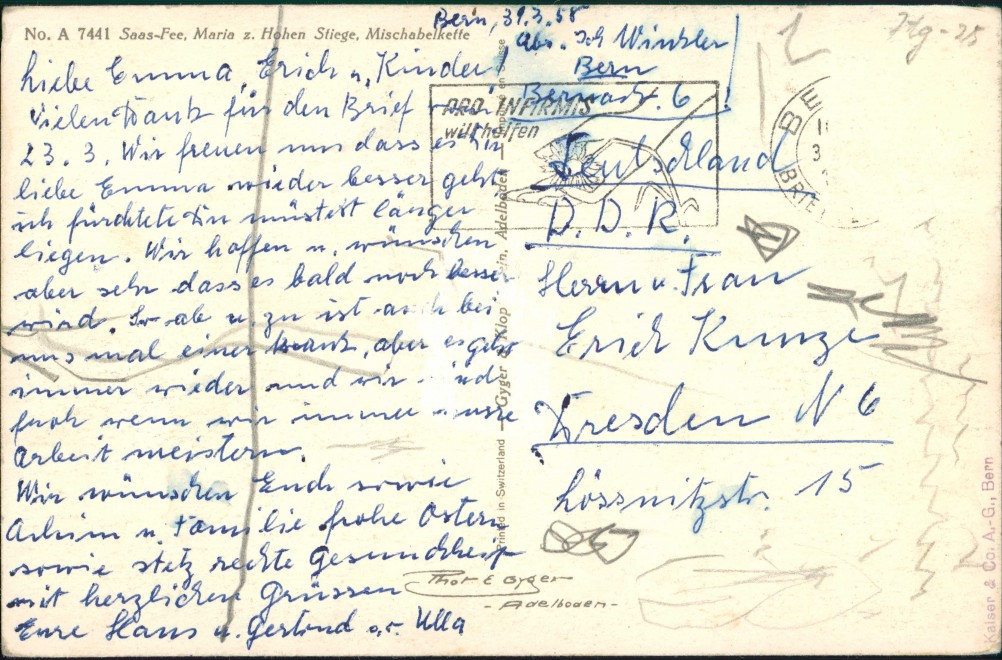 No. A 7441 Saas-Fee, Maria z. Hohen Stiege, Mischabelkette
Bern, 31.3.58
Abs. Joh Winkler
Bern
6
liebe Emma, Erich u. Kinder!
Vielen Dank für den Brief
23.3. Wir freuen uns dass es Dir
liebe Emma wieder besser geht
ich fürchtete Du müsstest länger
liegen. Wir hoffen u. wünschen
aber sehr dass es bald noch besser
wird. ab u. zu ist auch bei
uns mal einer krank, aber es geht
immer wieder und wir sind
froh wenn wir immer unsre
Arbeit meistern.
Wir wünschen Euch sowie
Achim u. Familie frohe Ostern
sowie stetz rechte Gesundheit
mit herzlichen Grüssen
Eure Hans u. Ulla
PRO INFIRMIS
will helfen
Deutschland
D.D.R.
Herrn u. Frau
Erich Kunze
Dresden N 6
Lössnitzstr. 15
Printed in Switzerland — Gyger & Klopfenstein, Adelboden
Thor E Gyger
- Adelboden -
Kaiser & Co. A.-G., Bern